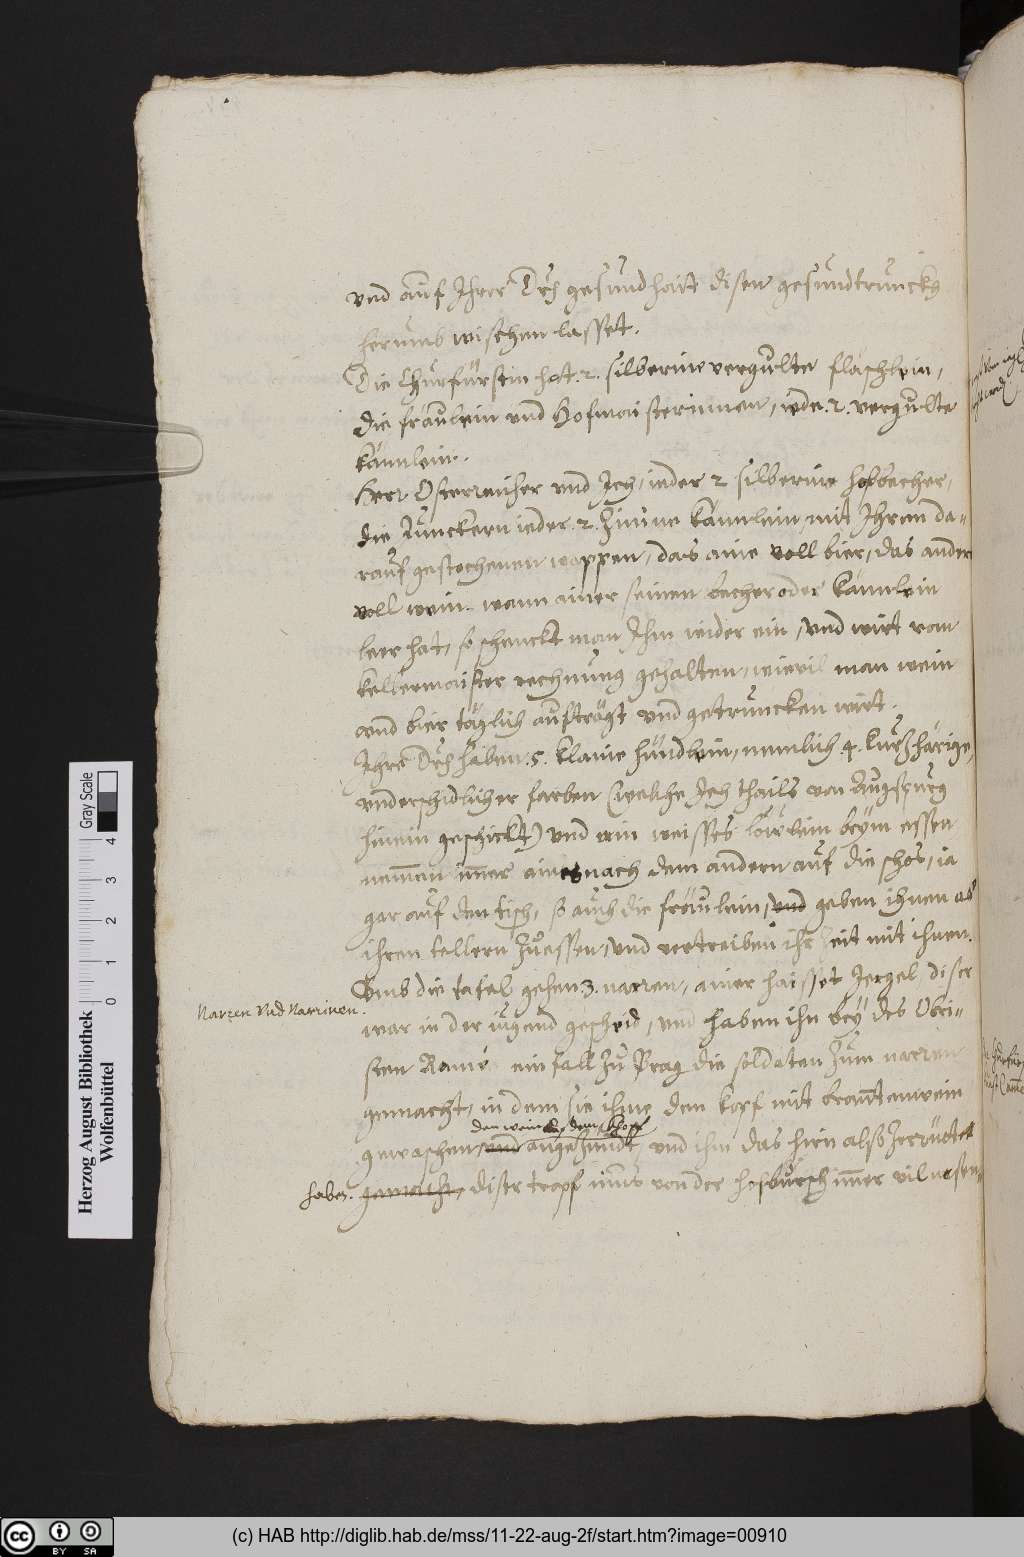 vnd auf Ihrer Drl gesundhait disen gesundtrunckh
herumb wischen lasset.
Die Churfürstin hat .2. silberine vergulte fläschlein,
die fräulein vnd Hofmaisterinnen, iede .2. vergulte
kännlein.
Herr Österreicher vnd Ich, ieder 2 silberine hofbecher,
die Junckern ieder .2. Zinine kännlein mit Ihren da-
rauf gestochenen wappen, das aine voll bier, das ander
voll wein. wann ainer seinen becher oder kännlein
leer hat, so schenckt man Ihm wider ein, vnd wirt vom
kellermaister rechnung gehalten, wievil man wein
vnd bier täglich aufträgt vnd getruncken wirt.
Ihre Drl haben .5. klaine hündlein, nemlich .4. kurzhärige,
vnderschidlicher farben (welche Ich thails von Augspurg
hinein geschickt) vnd ein weisses löwlein beÿm essen
nemmen immer aines nach dem andern auf die schos, ia
gar auf den tisch, so auch die fräulein, vnd geben ihnen ab
ihren tellern zuessen, vnd vertreiben ihr zeit mit ihnen.
Vmb die tafel gehen 3. narren, ainer haisset Jergel, diser
Narren Vnd Narrinen.
war in der iugend gescheid, vnd haben ihn beÿ des Obri-
sten Ramé einfall zu Prag die soldaten zum narren
gemacht, in dem sie ihme den kopf mit brantenwein
den wein auf dem Kopf
gewaschen, vnd angezündt, vnd ihm das hirn also zerrüttet
haben. gemacht, diser tropf muß von der hofbursch immer vil
Herzog August Bibliothek
Wolfenbüttel
0 1 2 3 4
Gray Scale
cc BY SA
(c) HAB http://diglib.hab.de/mss/11-22-aug-2f/start.htm?image=00910